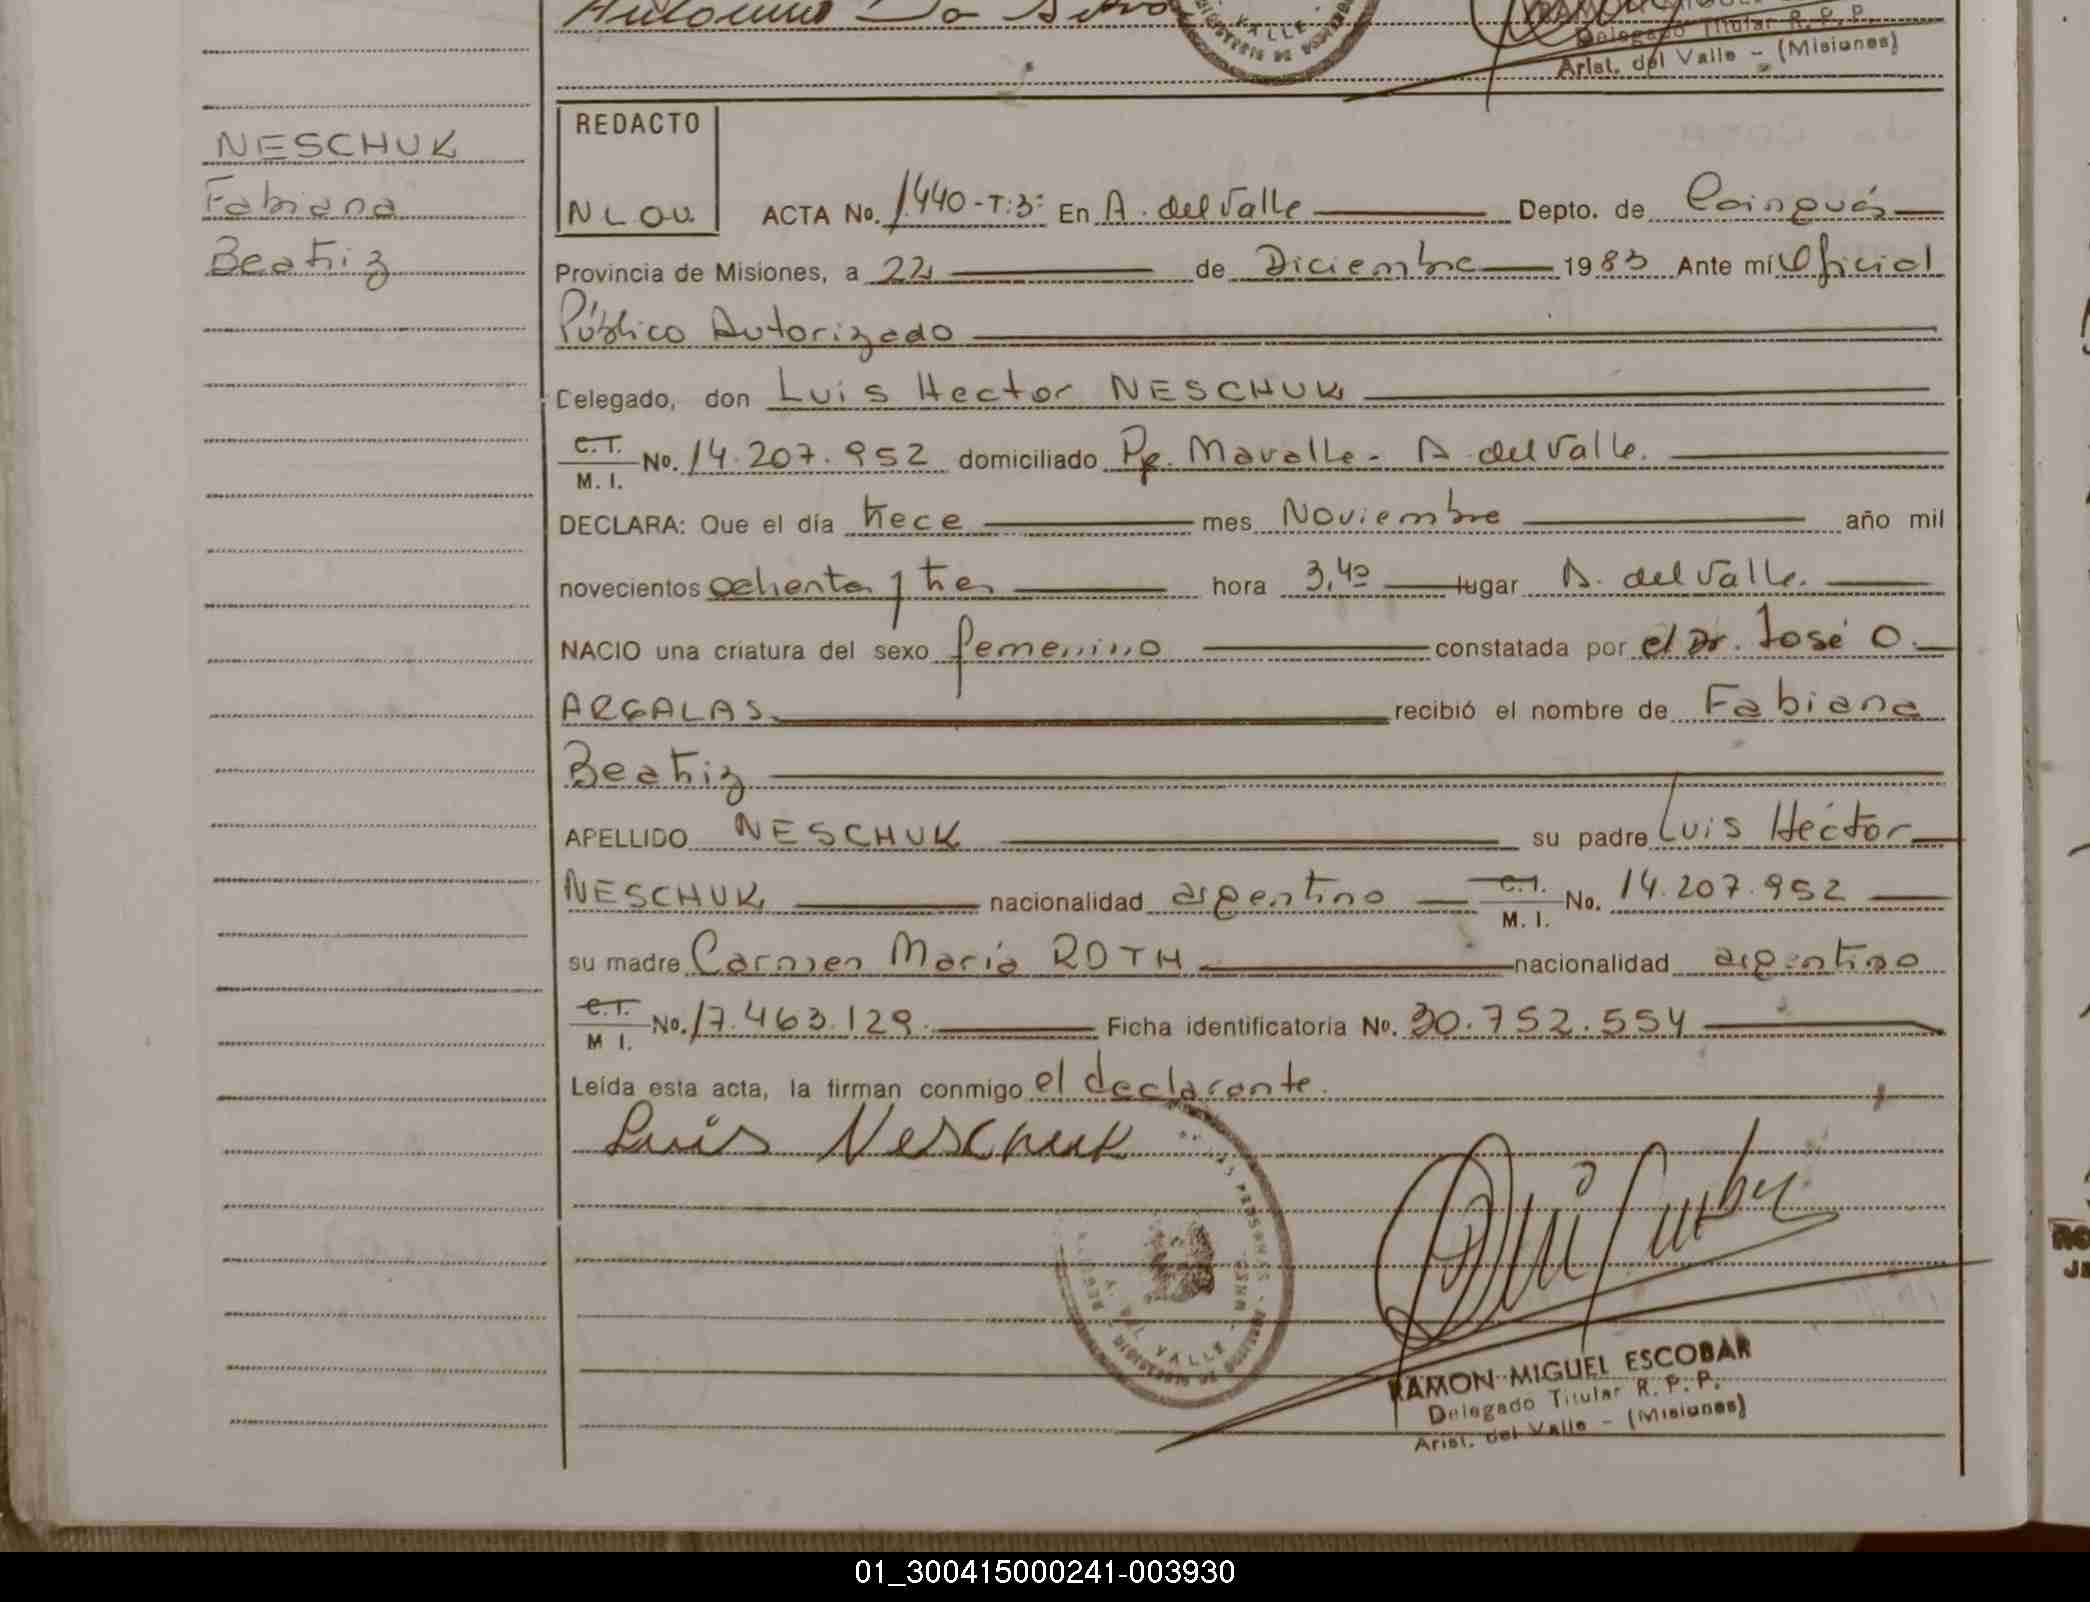 Delegado Titular R. P. P.
Arist. del Valle - (Misiones)
NESCHUK
Fabiana
Beatriz
REDACTO
N L OU.
ACTA No. 1.440-T:3: En A. del Valle Depto. de Cainguás
Provincia de Misiones, a 22 de Diciembre 1983 Ante mí Oficial
Público Autorizado
Celegado, don Luis Hector NESCHUK
C.I. M. I. No. 14.207.952 domiciliado Pje. Mavalle - A. del Valle.
DECLARA: Que el día trece mes Noviembre año mil
novecientos ochenta y tres hora 3,40 lugar A. del Valle.
NACIO una criatura del sexo femenino constatada por el Dr. José O.
ARGALAS recibió el nombre de Fabiana
Beatriz
APELLIDO NESCHUK su padre Luis Héctor
NESCHUK nacionalidad argentino C.I. M. I. No. 14.207.952
su madre Carmen María ROTH nacionalidad argentino
C.I. M I. No. 17.463.129. Ficha identificatoria No. 30.752.554
Leída esta acta, la firman conmigo el declarante.
Luis Neschuk
VALLE
RAMON MIGUEL ESCOBAR
Delegado Titular R. P. P.
Arist. del Valle - (Misiones)
01_300415000241-003930